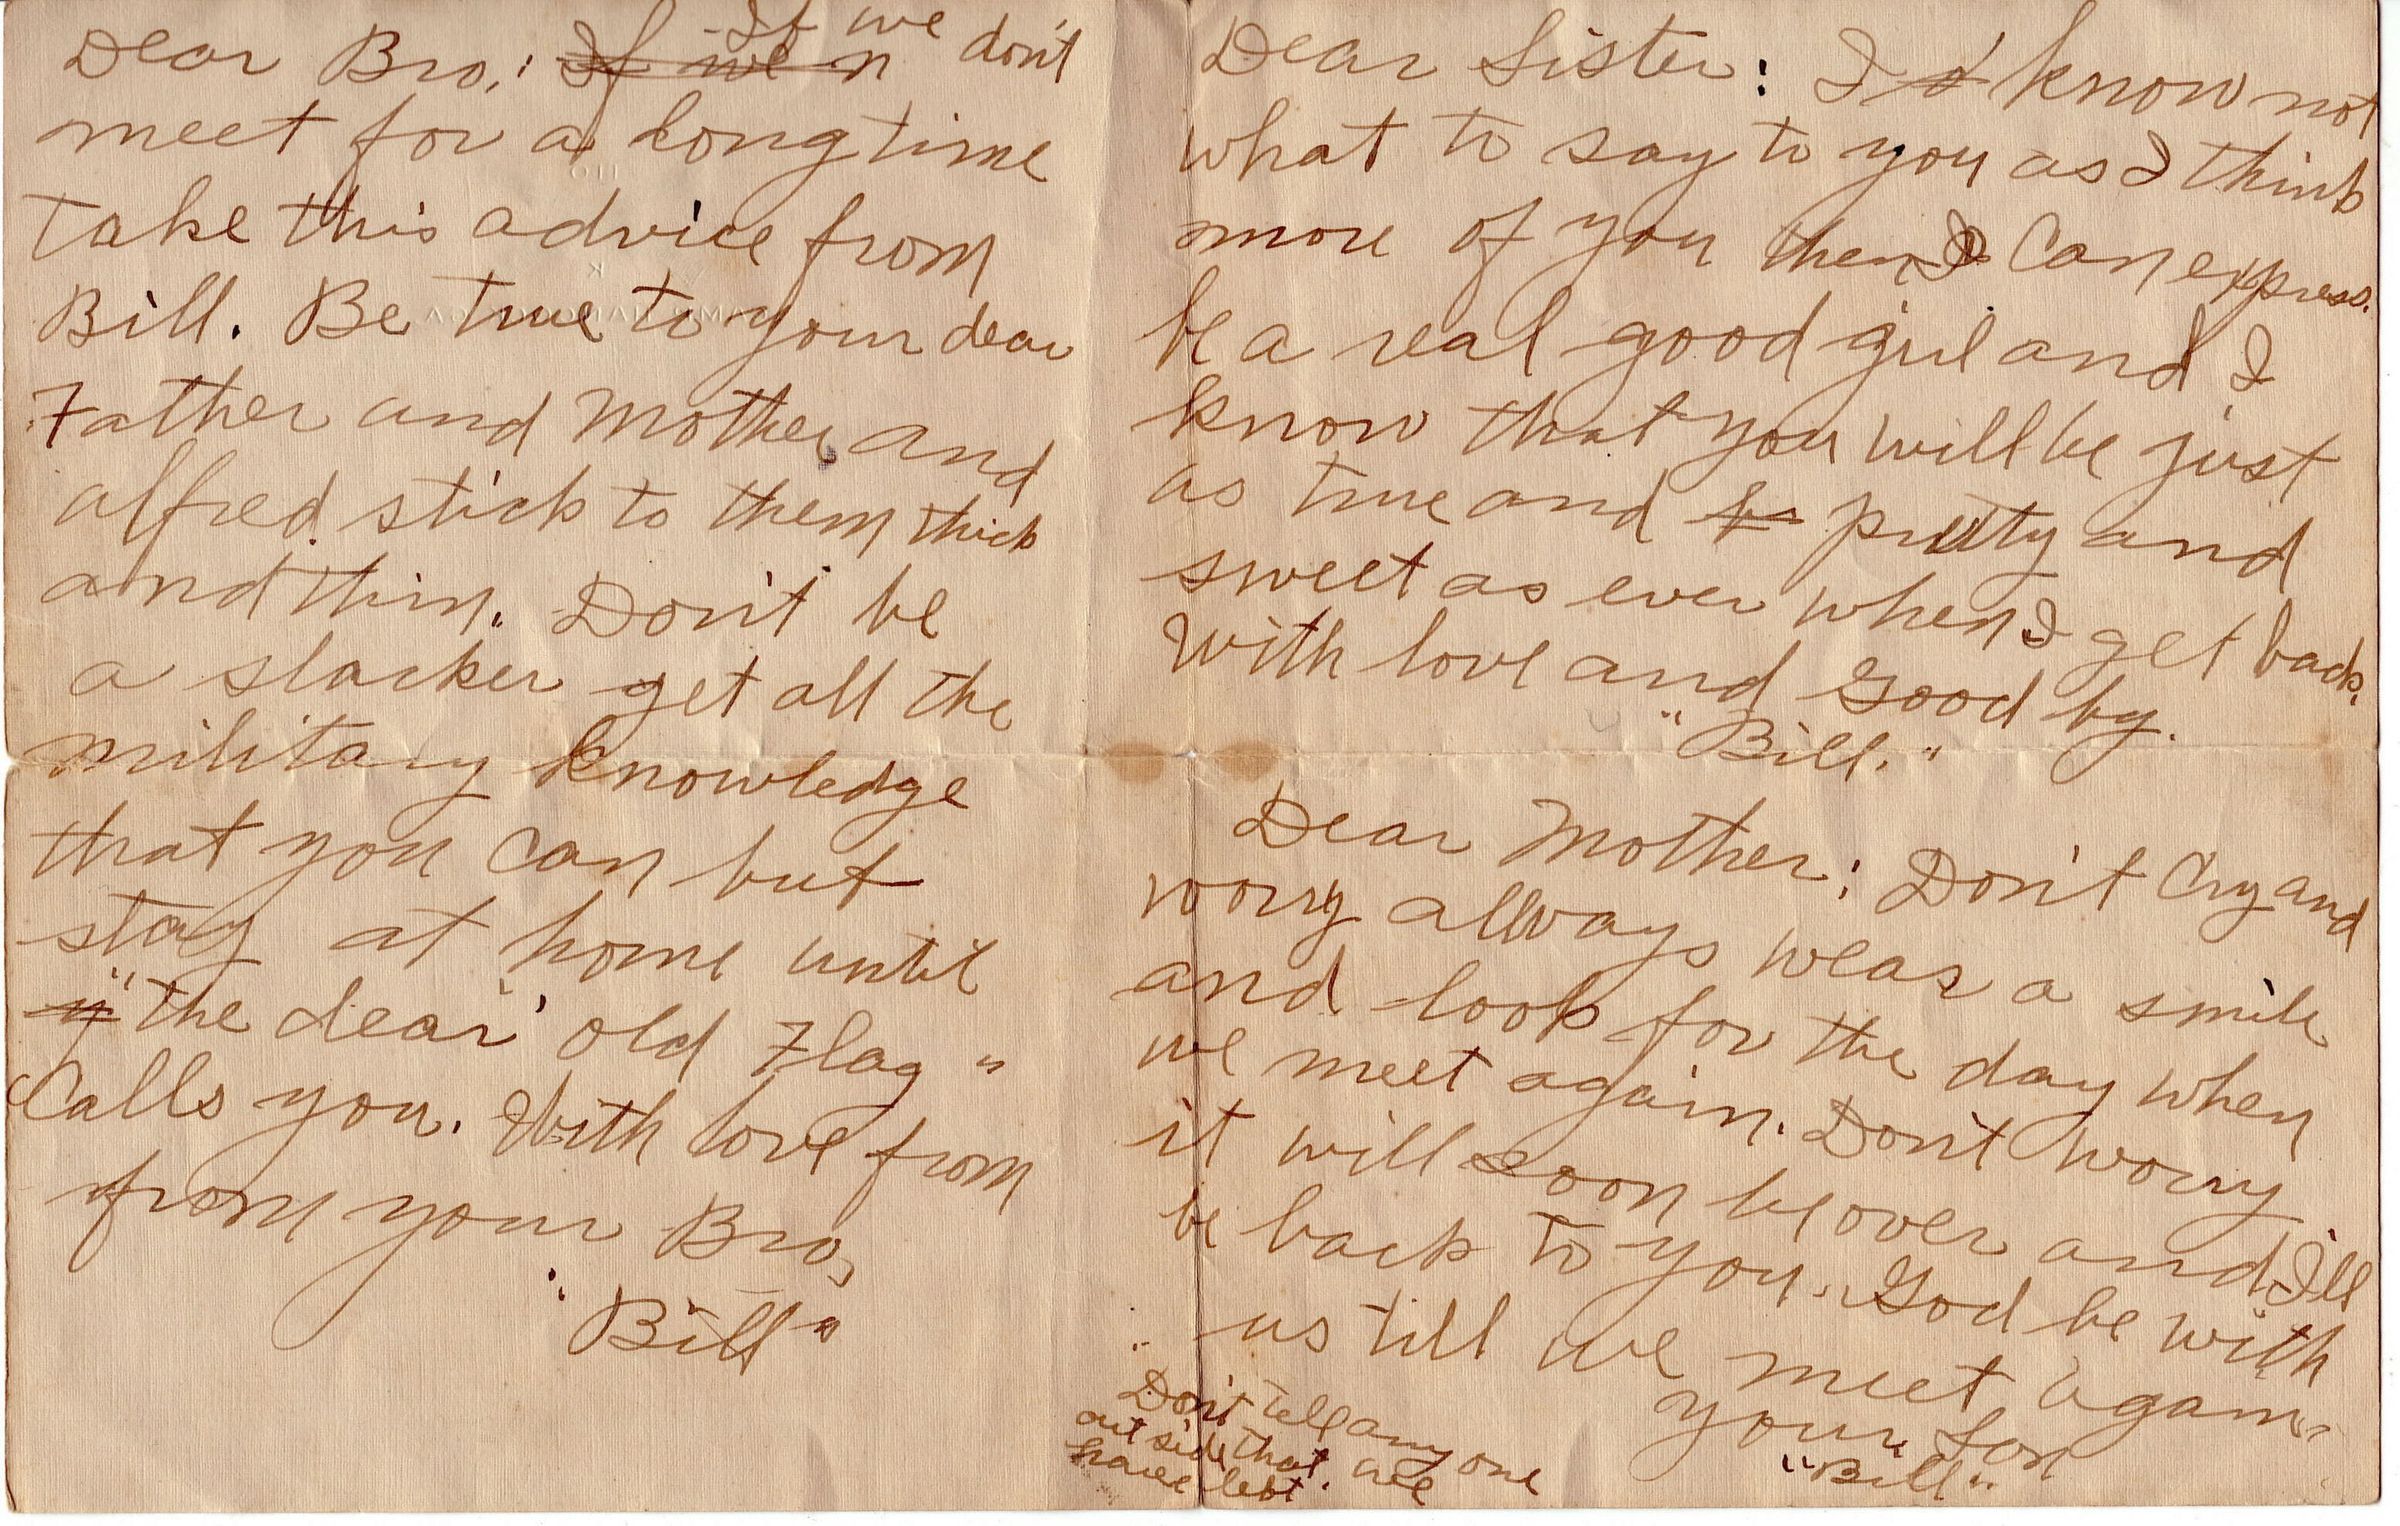 Dear Bro.: If we n If we don't
meet for a long time
take this advice from
Bill. Be true to your dear
Father and Mother and
alfred. stick to them thick
and thin. Don't be
a slacker get all the
military knowledge
that you can but
stay at home until
"the dear old Flag"
Calls you. With love from
from your Bro,
"Bill"
Dear Sister: I d know not
what to say to you as I think
more of you then I Can express.
be a real good girl and I
know that you will be just
as true and b pretty and
sweet as ever when I get back.
With love and Good by.
"Bill."
Dear Mother: Don't Cry and
worry allways wear a smile
and look for the day when
we meet again. Don't worry
it will soon be over and I'll
be back to you. God be with
us till we meet again.
your Son
"Bill"
Don't tell any one
out side that we
have left.